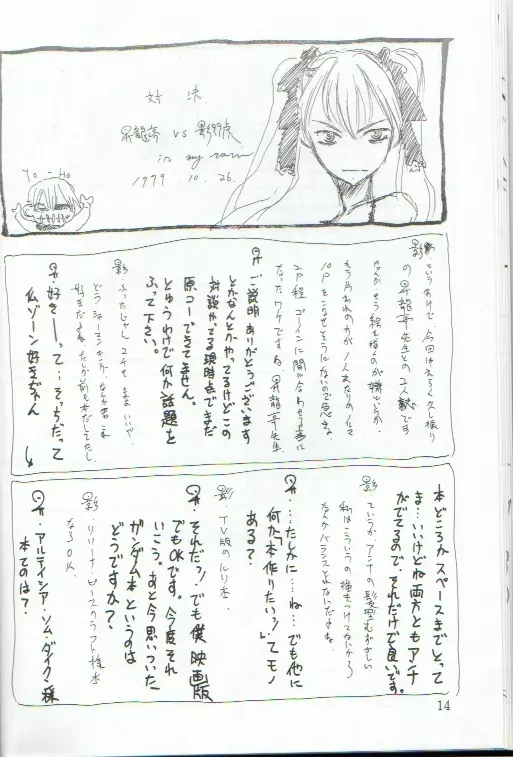 対決
昇龍亭 vs 影
in my room
1999 10. 26.
Yo-Ho
影 というわけで 今回はえらく久し振り
の昇龍亭先生との2人談です
なんか もう絵を描くのが嫌というか
もう月われの方が 1人あたりのノルマ
10Pをこなせそうにないので急きょ
2P程 ゴーインに間に合わせる事に
なったワケですね 昇龍亭先生
昇 ご説明ありがとうございます
とかなんとかやってるけどこの
対談やってる現時点でまだ
原コーできてません。
とゆうわけで何か話題を
ふって下さい。
影
どう シャーマンキングか なら君これ
好きだよね たしか前も本だしてたし
昇 好きーって…そっちだって
仏ゾーン好きぢゃん
本どころかスペースまでとって
ま…いいけどね 両方ともアンナ
がでてるので、それだけで良いです。
影 ていうか アンナの髪型むずかしい
私はこういうの描きつけてないから
なんかバランスとれないだよね
昇 ……たしかに…ね…でも他に
何か"本作りたいッ!"てモノ
ある?
影・TV版のルリ本・
昇・それだッ!でも僕 映画版
でもOKです。今度それ
いこう。あと今思いついた
ガンダム本というのは
どうですか?
影・リリーナ・ピースクラフト様本
ならOK.
昇・アルテイシア・ソム・ダイクン様
本てのは?
14